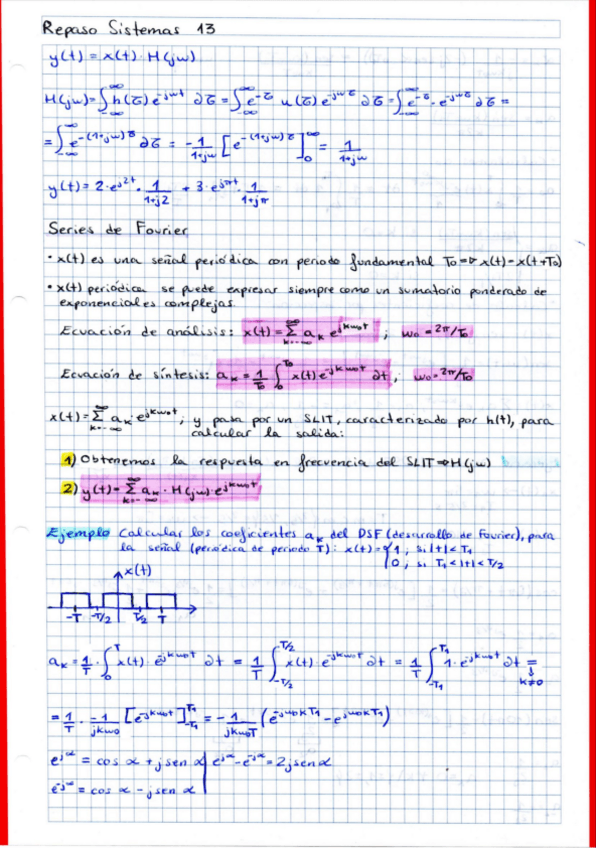 Repaso Sistemas 13
y(t) = x(t) · H(jω)
H(jω)=∫_{-∞}^{∞} h(τ) e^{-jωt} ∂τ = ∫_{-∞}^{∞} e^{-τ} u(τ) e^{-jωτ} ∂τ = ∫_{-∞}^{∞} e^{-τ} · e^{-jωτ} ∂τ =
= ∫_{-∞}^{∞} e^{-(1+jω)τ} ∂τ = -1/(1+jω) [e^{-(1+jω)τ}]_0^∞ = 1/(1+jω)
y(t) = 2·e^{j2t} · 1/(1+j2) + 3·e^{jπt} · 1/(1+jπ)
Series de Fourier
· x(t) es una señal periódica con periodo fundamental T₀ ⇒ x(t)=x(t+T₀)
· x(t) periódica se puede expresar siempre como un sumatorio ponderado de
exponenciales complejas
Ecuación de análisis: x(t)=∑_{k=-∞}^{∞} a_k e^{jkω₀t} ; ω₀=2π/T₀
Ecuación de síntesis: a_k = 1/T₀ ∫_0^{T₀} x(t) e^{-jkω₀t} ∂t ; ω₀=2π/T₀
x(t)=∑_{k=-∞}^{∞} a_k·e^{jkω₀t} ; y pasa por un SLIT, caracterizado por h(t), para
calcular la salida:
1) Obtenemos la respuesta en frecuencia del SLIT ⇒ H(jω)
2) y(t)=∑_{k=-∞}^{∞} a_k · H(jω) · e^{jkω₀t}
Ejemplo Calcular los coeficientes a_k del DSF (desarrollo de Fourier), para
la señal (periódica de periodo T): x(t)={1 ; si |t|<T₁
0 ; si T₁<|t|<T/2
x(t)
-T -T/2 T/2 T
a_k = 1/T · ∫_0^T x(t) · e^{-jkω₀t} ∂t = 1/T ∫_{-T/2}^{T/2} x(t) · e^{-jkω₀t} ∂t = 1/T ∫_{-T₁}^{T₁} 1·e^{-jkω₀t} ∂t =
k≠0
= 1/T · -1/(jkω₀) [e^{-jkω₀t}]_{-T₁}^{T₁} = -1/(jkω₀T) (e^{-jω₀kT₁} - e^{jω₀kT₁})
e^{jα} = cos α + j sen α | e^{jα} - e^{-jα} = 2j sen α
e^{-jα} = cos α - j sen α